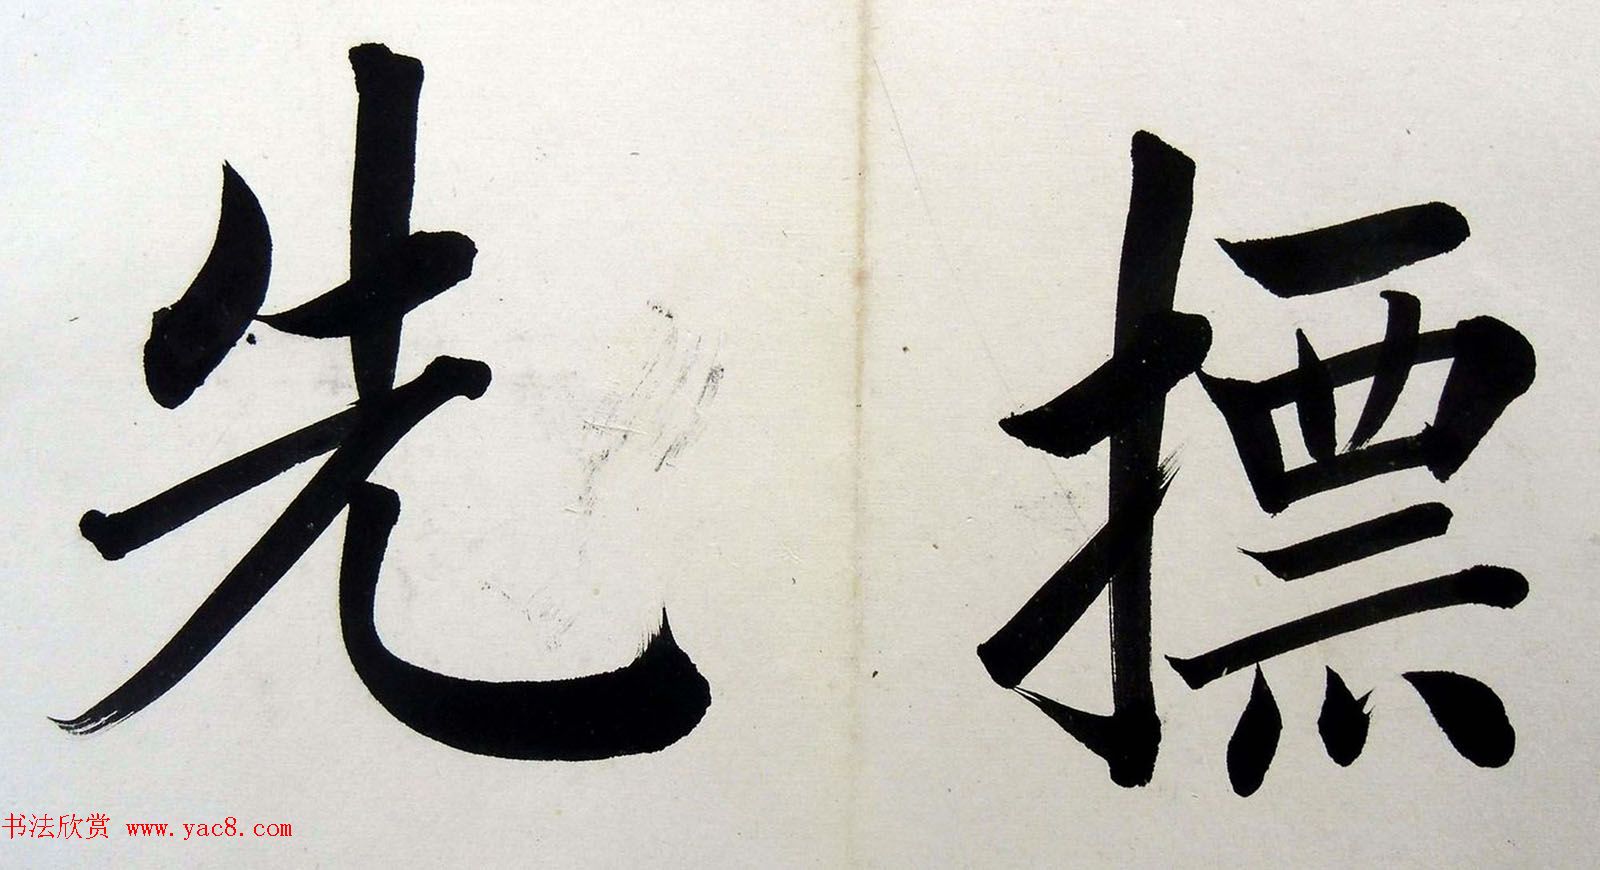 摽先
书法欣赏 www.yac8.com